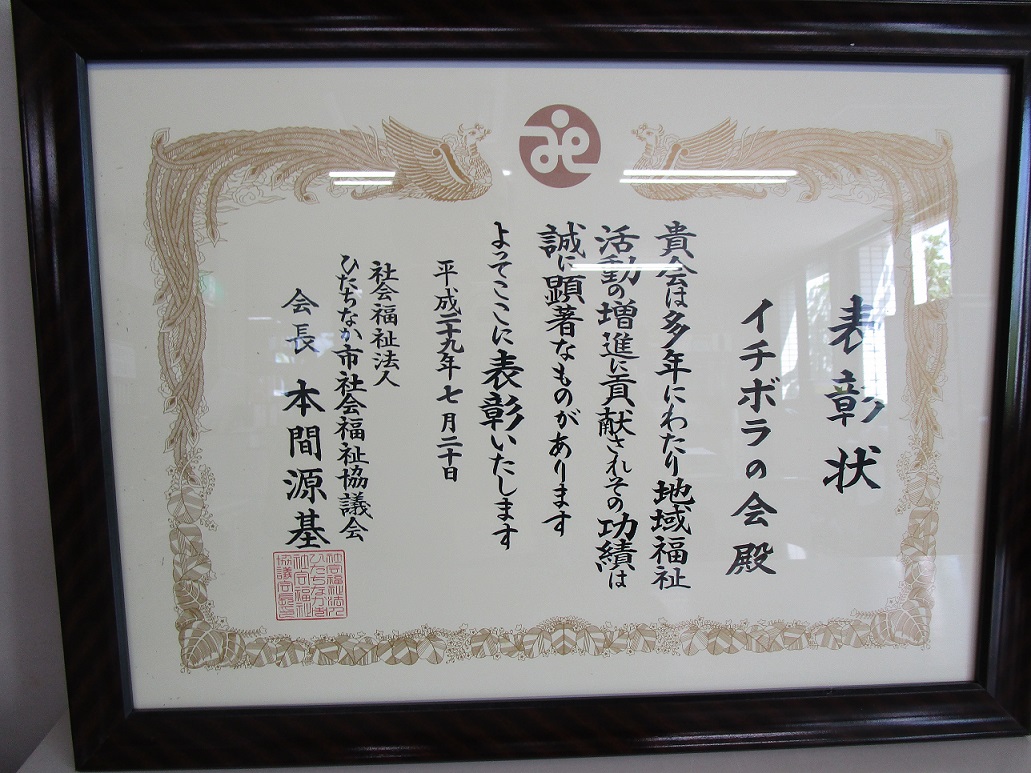 表彰状
イチボラの会殿
貴会は多年にわたり地域福祉
活動の増進に貢献されその功績は
誠に顕著なものがあります
よってここに表彰いたします
平成二十九年七月二十日
社会福祉法人
ひたちなか市社会福祉協議会
会長 本間源基